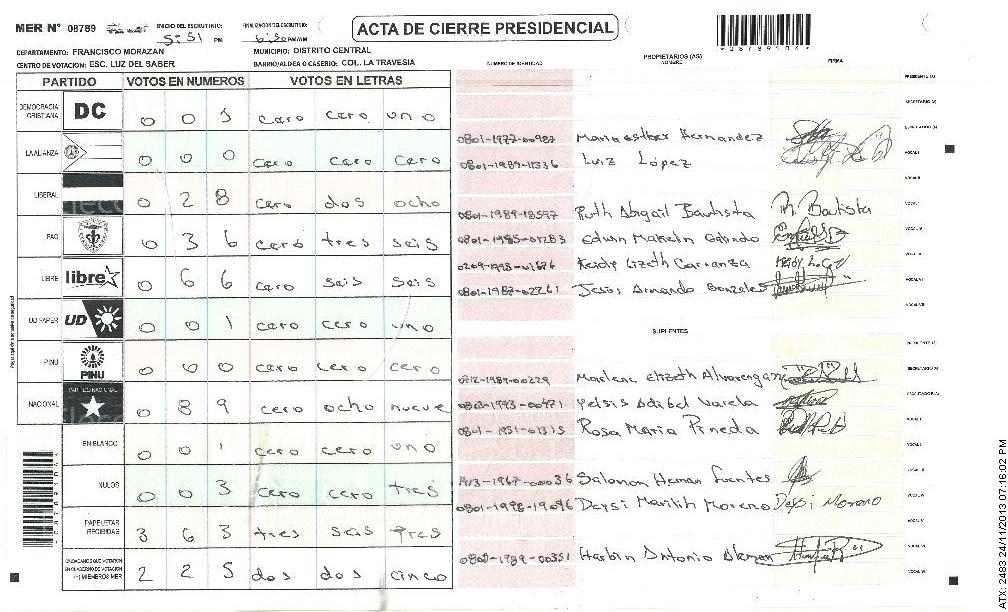 MER Nº 08789 INICIO DEL ESCRUTINIO: 5:51 PM FINALIZACION DEL ESCRUTINIO: PM/AM
ACTA DE CIERRE PRESIDENCIAL
DEPARTAMENTO: FRANCISCO MORAZAN MUNICIPIO: DISTRITO CENTRAL
CENTRO DE VOTACION: ESC. LUZ DEL SABER BARRIO/ALDEA O CASERIO: COL. LA TRAVESIA
NUMERO DE IDENTIDAD PROPIETARIOS (AS) NOMBRE FIRMA
PARTIDO VOTOS EN NUMEROS VOTOS EN LETRAS
DEMOCRACIA CRISTIANA DC 0 0 1 cero cero uno
LA ALIANZA 0 0 0 cero cero cero
LIBERAL 0 2 8 cero dos ocho
PAC 0 3 6 cero tres seis
LIBRE libre 0 6 6 cero seis seis
UD PAPER UD 0 0 1 cero cero uno
PINU PINU 0 0 0 cero cero cero
NACIONAL PARTIDO NACIONAL 0 8 9 cero ocho nueve
EN BLANCO 0 0 1 cero cero uno
NULOS 0 0 3 cero cero tres
PAPELETAS RECIBIDAS 3 6 3 tres seis tres
CIUDADANOS QUE VOTARON EN CUADERNO DE VOTACION (+) MIEMBROS MER 2 2 5 dos dos cinco
PRESIDENTE (A)
SECRETARIO (A)
ESCRUTADOR (A)
0801-1977-00987 Maria esther Hernandez
VOCAL I
0801-1989-11336 Luiz López
VOCAL II
0801-1989-18597 Ruth Abigail Bautista R. Bautista
0801-1985-01283 Edwin
Keidy Lizeth Carranza
0801-1987-02261 Jesús Armando Gonzales
VOCAL VII
SUPLENTES
SECRETARIO (A)
Marlene Elizeth Alvarenga
0803-1993-00471 Yelsis Adibel Varela
0801-1951-01315 Rosa Maria Pineda
Salomon Hernan Fuentes
0801-1998-19096 Deysi Marilith Moreno Deysi Moreno
Harbin Antonio
ATX: 2483 24/11/2013 07:16:02 PM